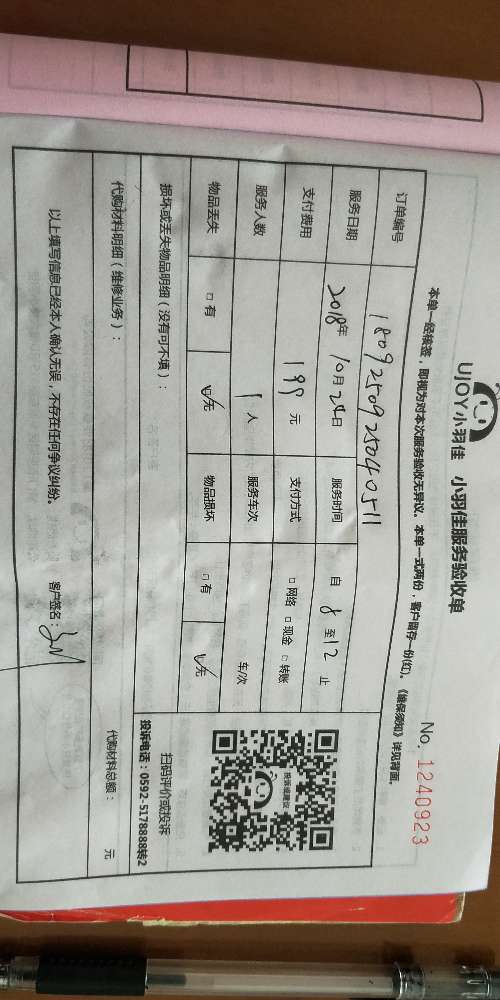 UJOY小羽佳 小羽佳服务验收单
No. 1240923
本单一经核签，即视为对本次服务验收无异议。本单一式两份，客户留存一份(红)。《维保须知》详见背面。
订单编号 180925092504 0511
服务日期 2018年 10月 24日 服务时间 自 8 至 12 止
支付费用 199 元 支付方式 □ 网络 □ 现金 □ 转账
服务人数 1 人 服务车次 车/次
物品丢失 □ 有 ☑ 无 物品损坏 □ 有 ☑ 无
投诉或建议
扫码评价或投诉
投诉电话：0592-5178888转2
损坏或丢失物品明细（没有可不填）：
代购材料明细（维修业务）：
代购材料总额： 元
以上填写信息已经本人确认无误，不存在任何争议纠纷。 客户签名：